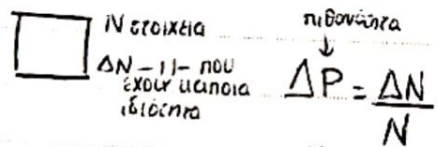 N στοιχεία
ΔN -//- που
έχουν κάποια
ιδιότητα
πιθανότητα
↓
ΔP = ΔN / N